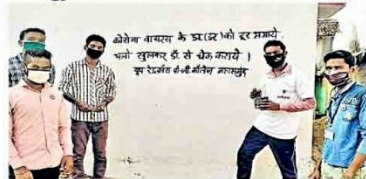 कोरोना वायरस के डर (डर) को दूर भगाये
चलो खुलकर डॉ. से चेक कराये ।
यूथ रेडक्रॉस पी.जी. कॉलेज महासमुंद